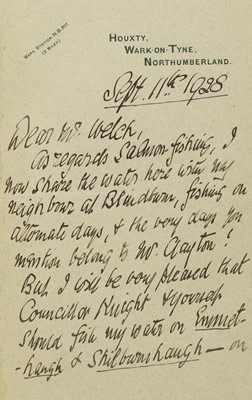 Wark Station, N.B. Rly
(5 Miles)
Houxty,
Wark-on-Tyne,
Northumberland.
Sept. 11th 1928
Dear Mr. Welch,
As regards Salmon-fishing, I
now share the water here with my
neighbour at Blindburn, fishing on
alternate days, & the very days you
mention belong to Mr. Clayton!
But I will be very pleased that
Councillor Knight & yourself
should fish my water on Emmet-
-haugh & Shilburnhaugh — on